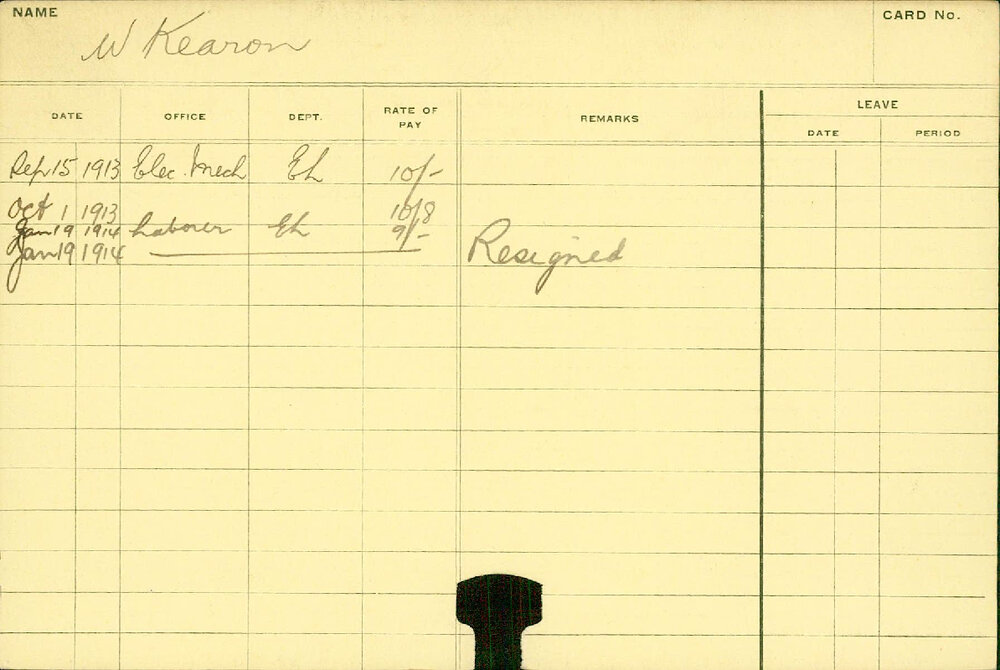 NAME
CARD No.
W Kearon
DATE OFFICE DEPT. RATE OF PAY REMARKS LEAVE
DATE PERIOD
Sep 15 1913 Elec. Mech EL 10/-
Oct 1 1913 10/8
Jan 19 1914 Laborer EL 9/-
Jan 19 1914 Resigned